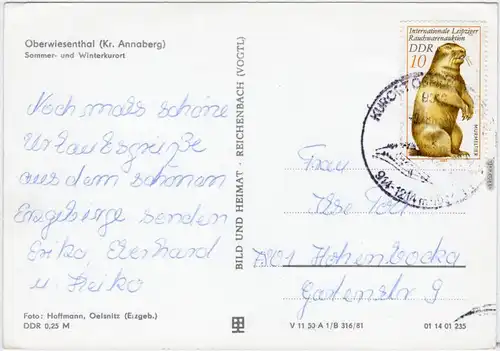 Oberwiesenthal (Kr. Annaberg)
Sommer- und Winterkurort
Nochmals schöne
Urlaubsgrüße
aus dem schönen
Erzgebirge senden
Erika, Eberhard
u. Heiko
Foto: Hoffmann, Oelsnitz (Erzgeb.)
DDR 0,25 M
BILD UND HEIMAT · REICHENBACH (VOGTL)
Internationale Leipziger
Rauchwarenauktion
DDR
10
MURMELTIER
KURORT
914-1214 m
Frau
Ilse
7801 Hohenbocka
Gartenstr 9
V 11 50 A 1/B 316/81
01 14 01 235